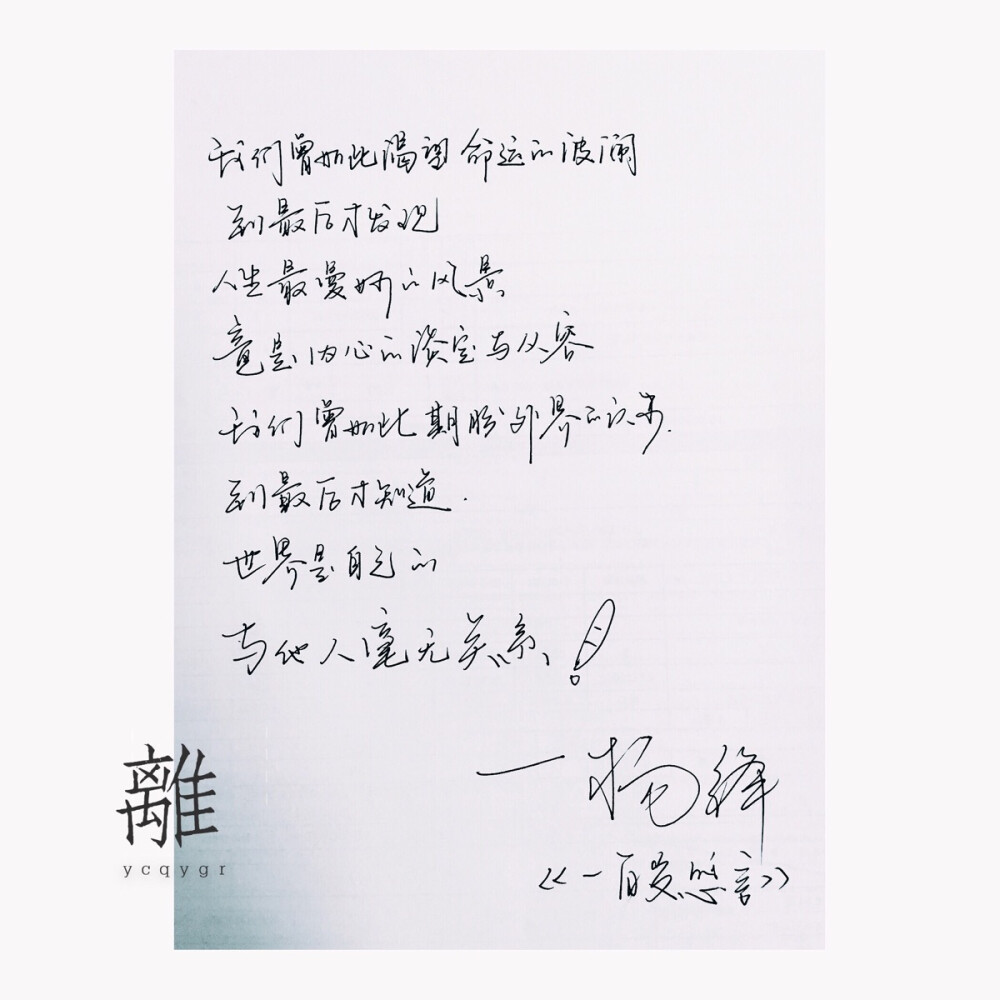 我们曾如此渴望命运的波澜
到最后才发现
人生最曼妙的风景
竟是内心的淡定与从容
我们曾如此期盼外界的认可.
到最后才知道.
世界是自己的
与他人毫无关系!
—杨绛
《一百岁感言》
離
ycqygr